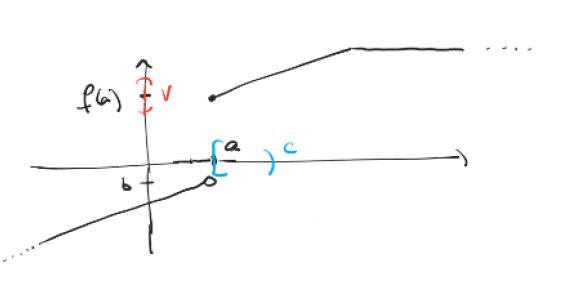 f(a)
v
a
c
b